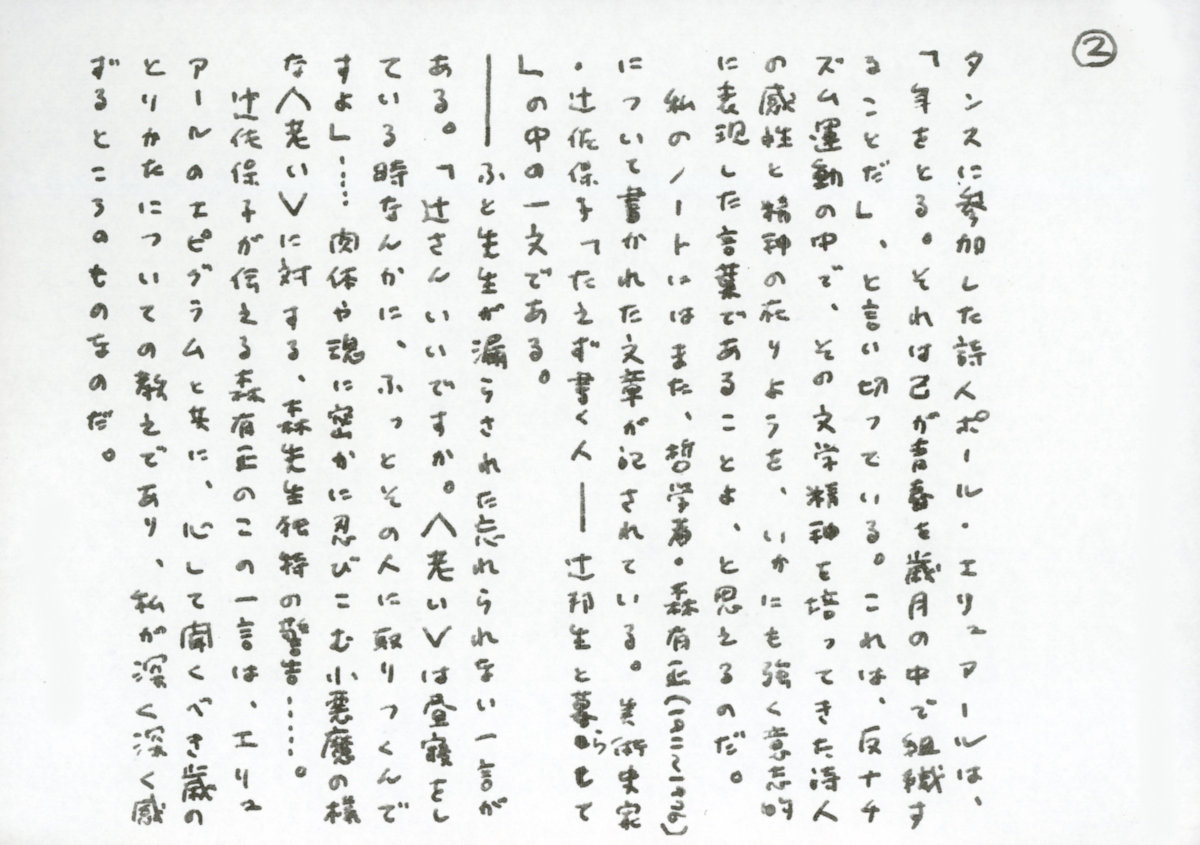 ②
タンスに参加した詩人ポール・エリュアールは、
「年をとる。それは己が青春を歳月の中で組織す
ることだ」、と言い切っている。これは、反ナチ
ズム運動の中で、その文学精神を培ってきた詩人
の感性と精神の在りようを、いかにも強く意志的
に表現した言葉であることよ、と思えるのだ。
私のノートにはまた、哲学者・森有正
について書かれた文章が記されている。美術史家
・辻佐保子「たえず書く人――辻邦生と暮らして
」の中の一文である。
――ふと先生が漏らされた忘れられない一言が
ある。「辻さんいいですか。〈老い〉は昼寝をし
ている時なんかに、ふっとその人に取りつくんで
すよ」……肉体や魂に密かに忍びこむ小悪魔の様
な〈老い〉に対する、森先生独特の警告……。
辻佐保子が伝える森有正のこの一言は、エリュ
アールのエピグラムと共に、心して聞くべき歳の
とりかたについての教えであり、私が深く深く感
ずるところのものなのだ。